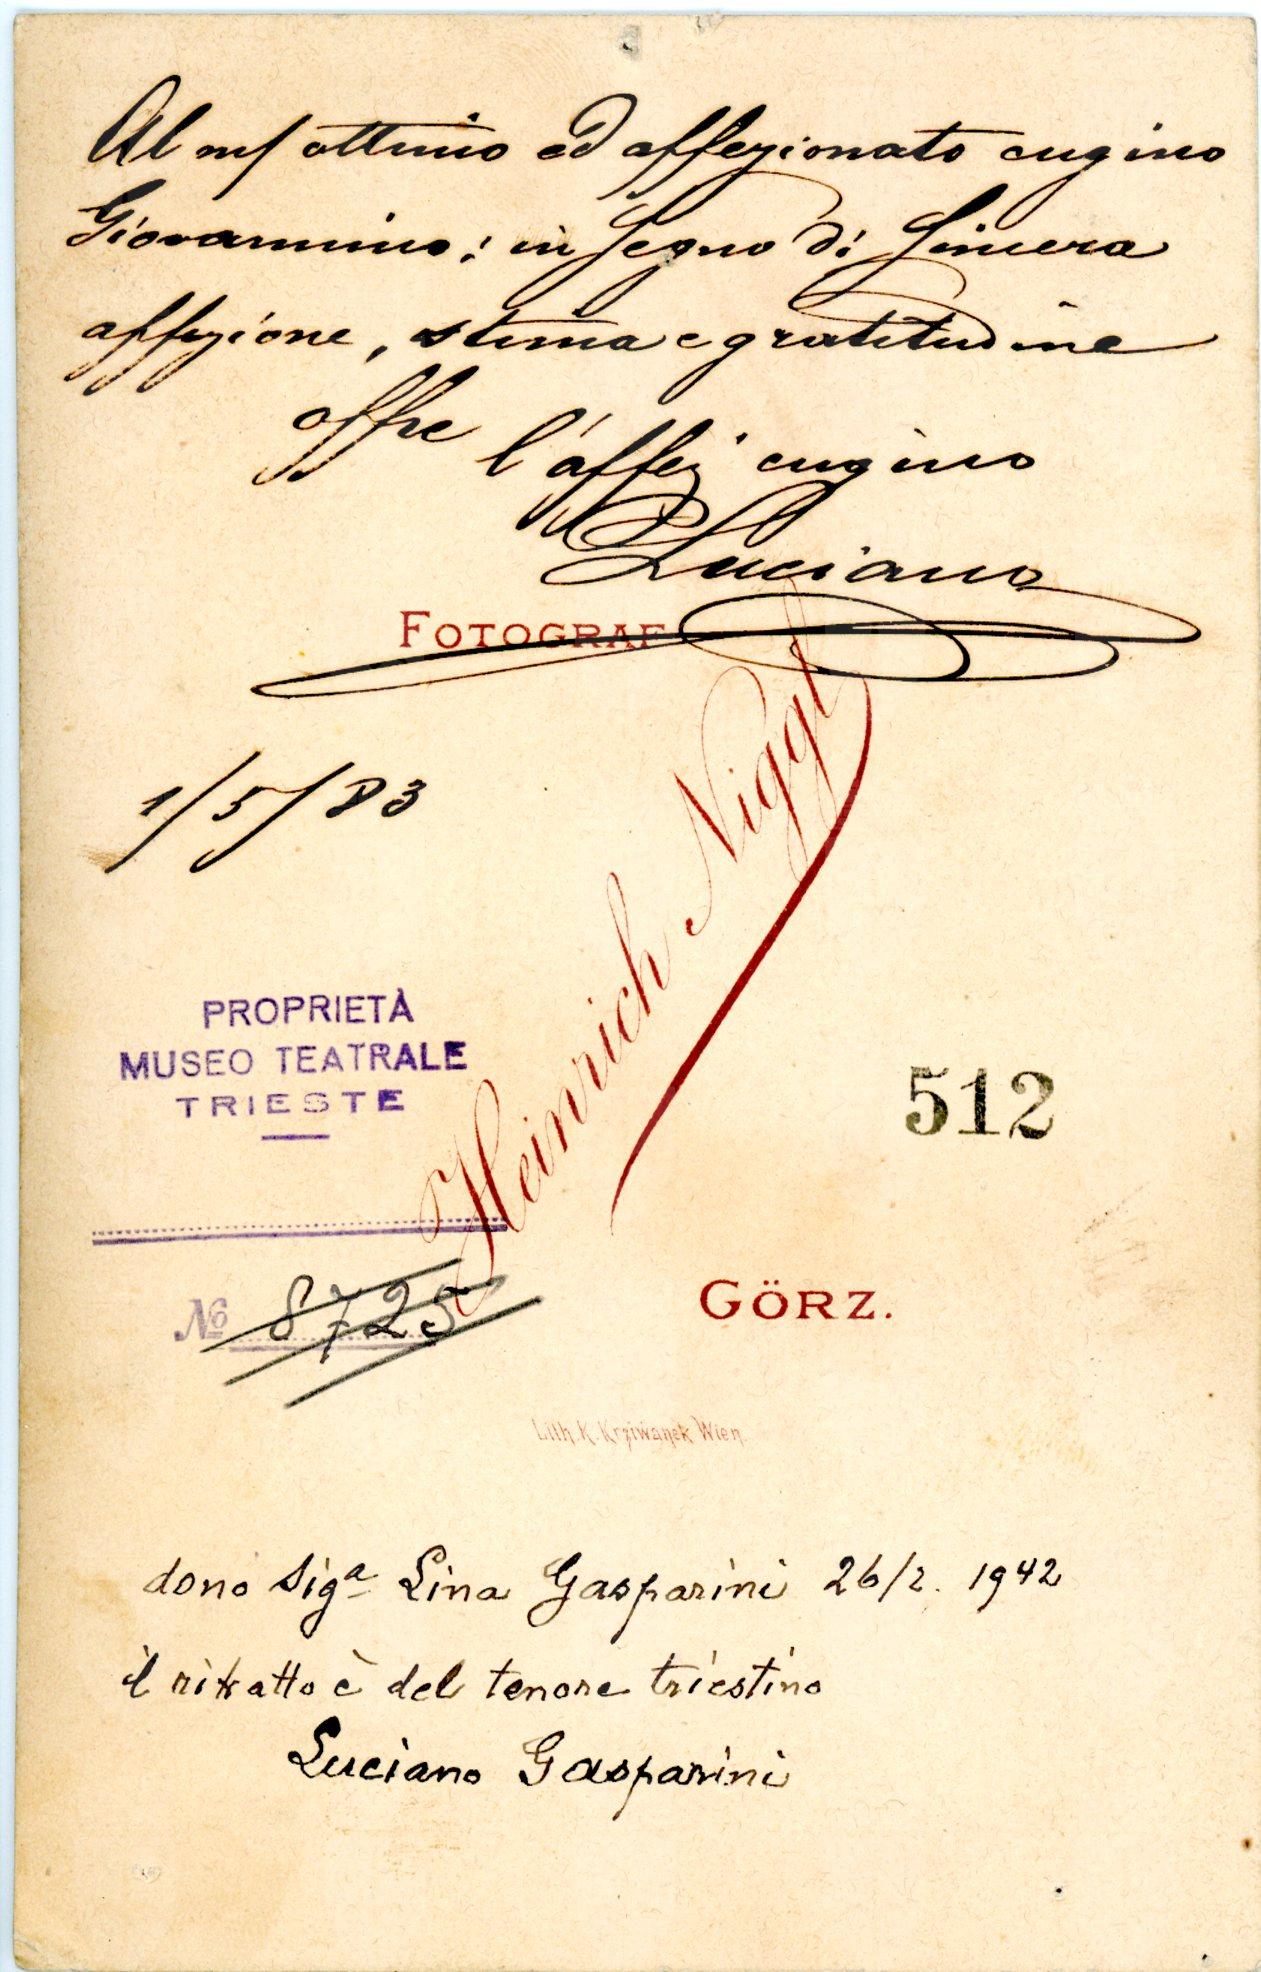 Al mſ ottimo ed affezionato cugino
Giovannino; in segno di sincera
affezione, stima e gratitudine
offre l'affez cugino
Luciano
FOTOGRAF
Heinrich Niggl
1/5/83
PROPRIETÀ
MUSEO TEATRALE
TRIESTE
512
№ 8725
GÖRZ.
Lith. K. Krziwanek Wien.
dono Sigª Lina Gasparini 26/2. 1942
il ritratto è del tenore triestino
Luciano Gasparini